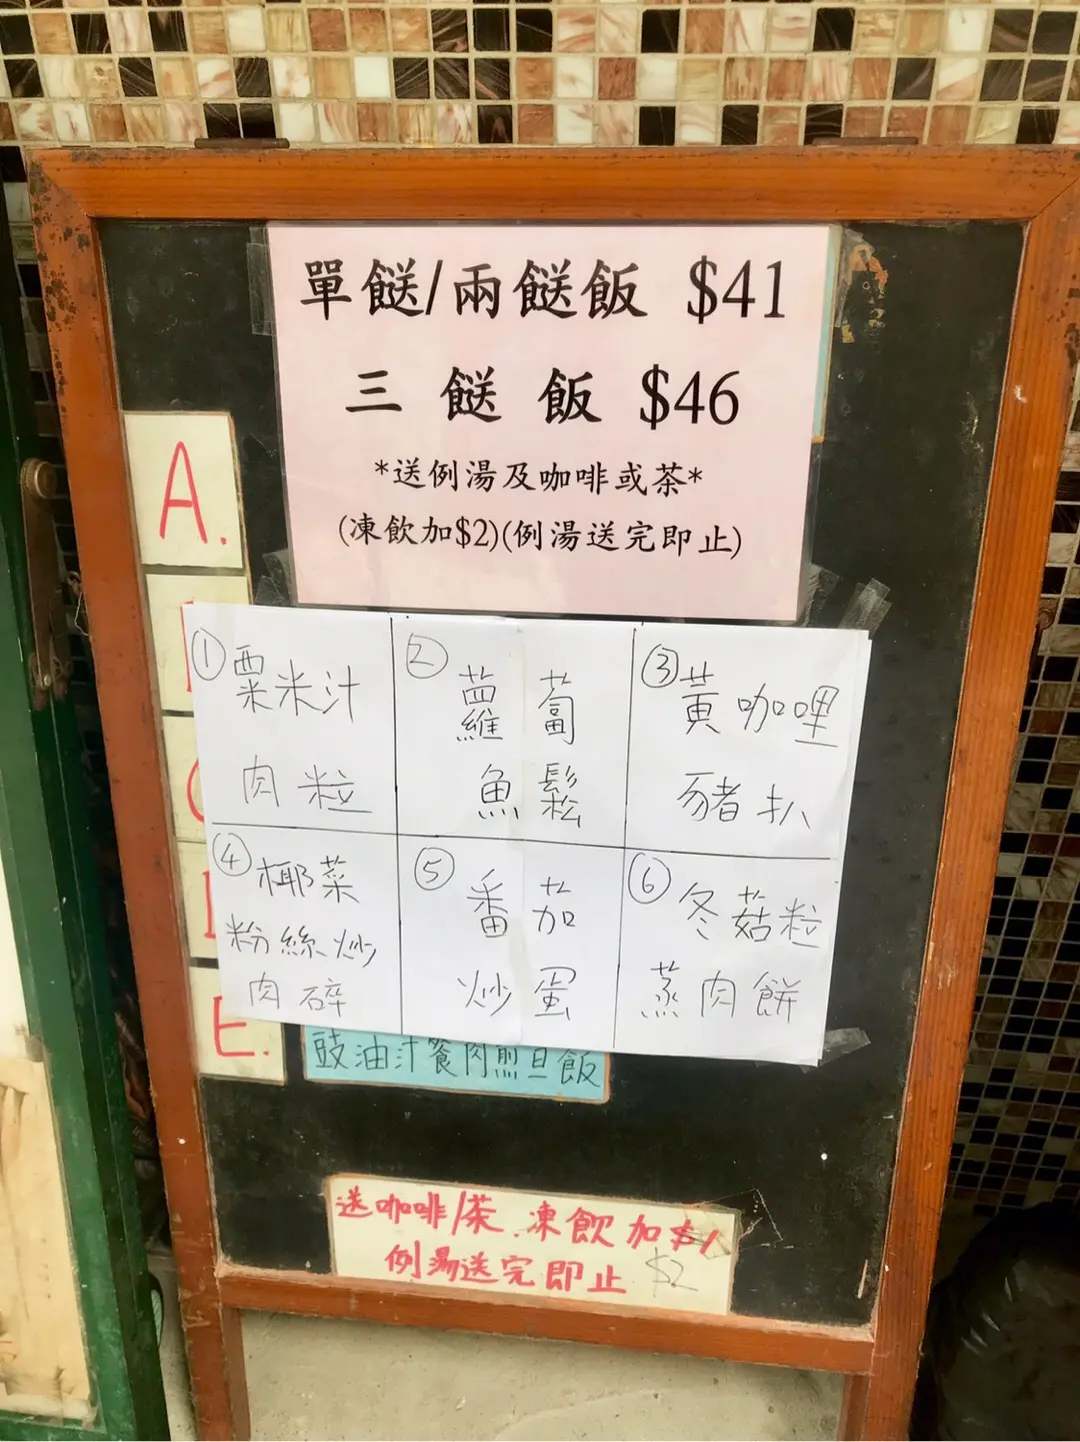 單餸/兩餸飯 $41
三餸飯 $46
*送例湯及咖啡或茶*
(凍飲加$2)(例湯送完即止)
A.
① 粟米汁
肉粒
② 蘿蔔
魚鬆
③ 黃咖哩
豬扒
④ 椰菜
粉絲炒
肉碎
⑤ 番茄
炒蛋
⑥ 冬菇粒
蒸肉餅
E.
豉油汁餐肉煎旦飯
送咖啡/茶.凍飲加$1
例湯送完即止 $2